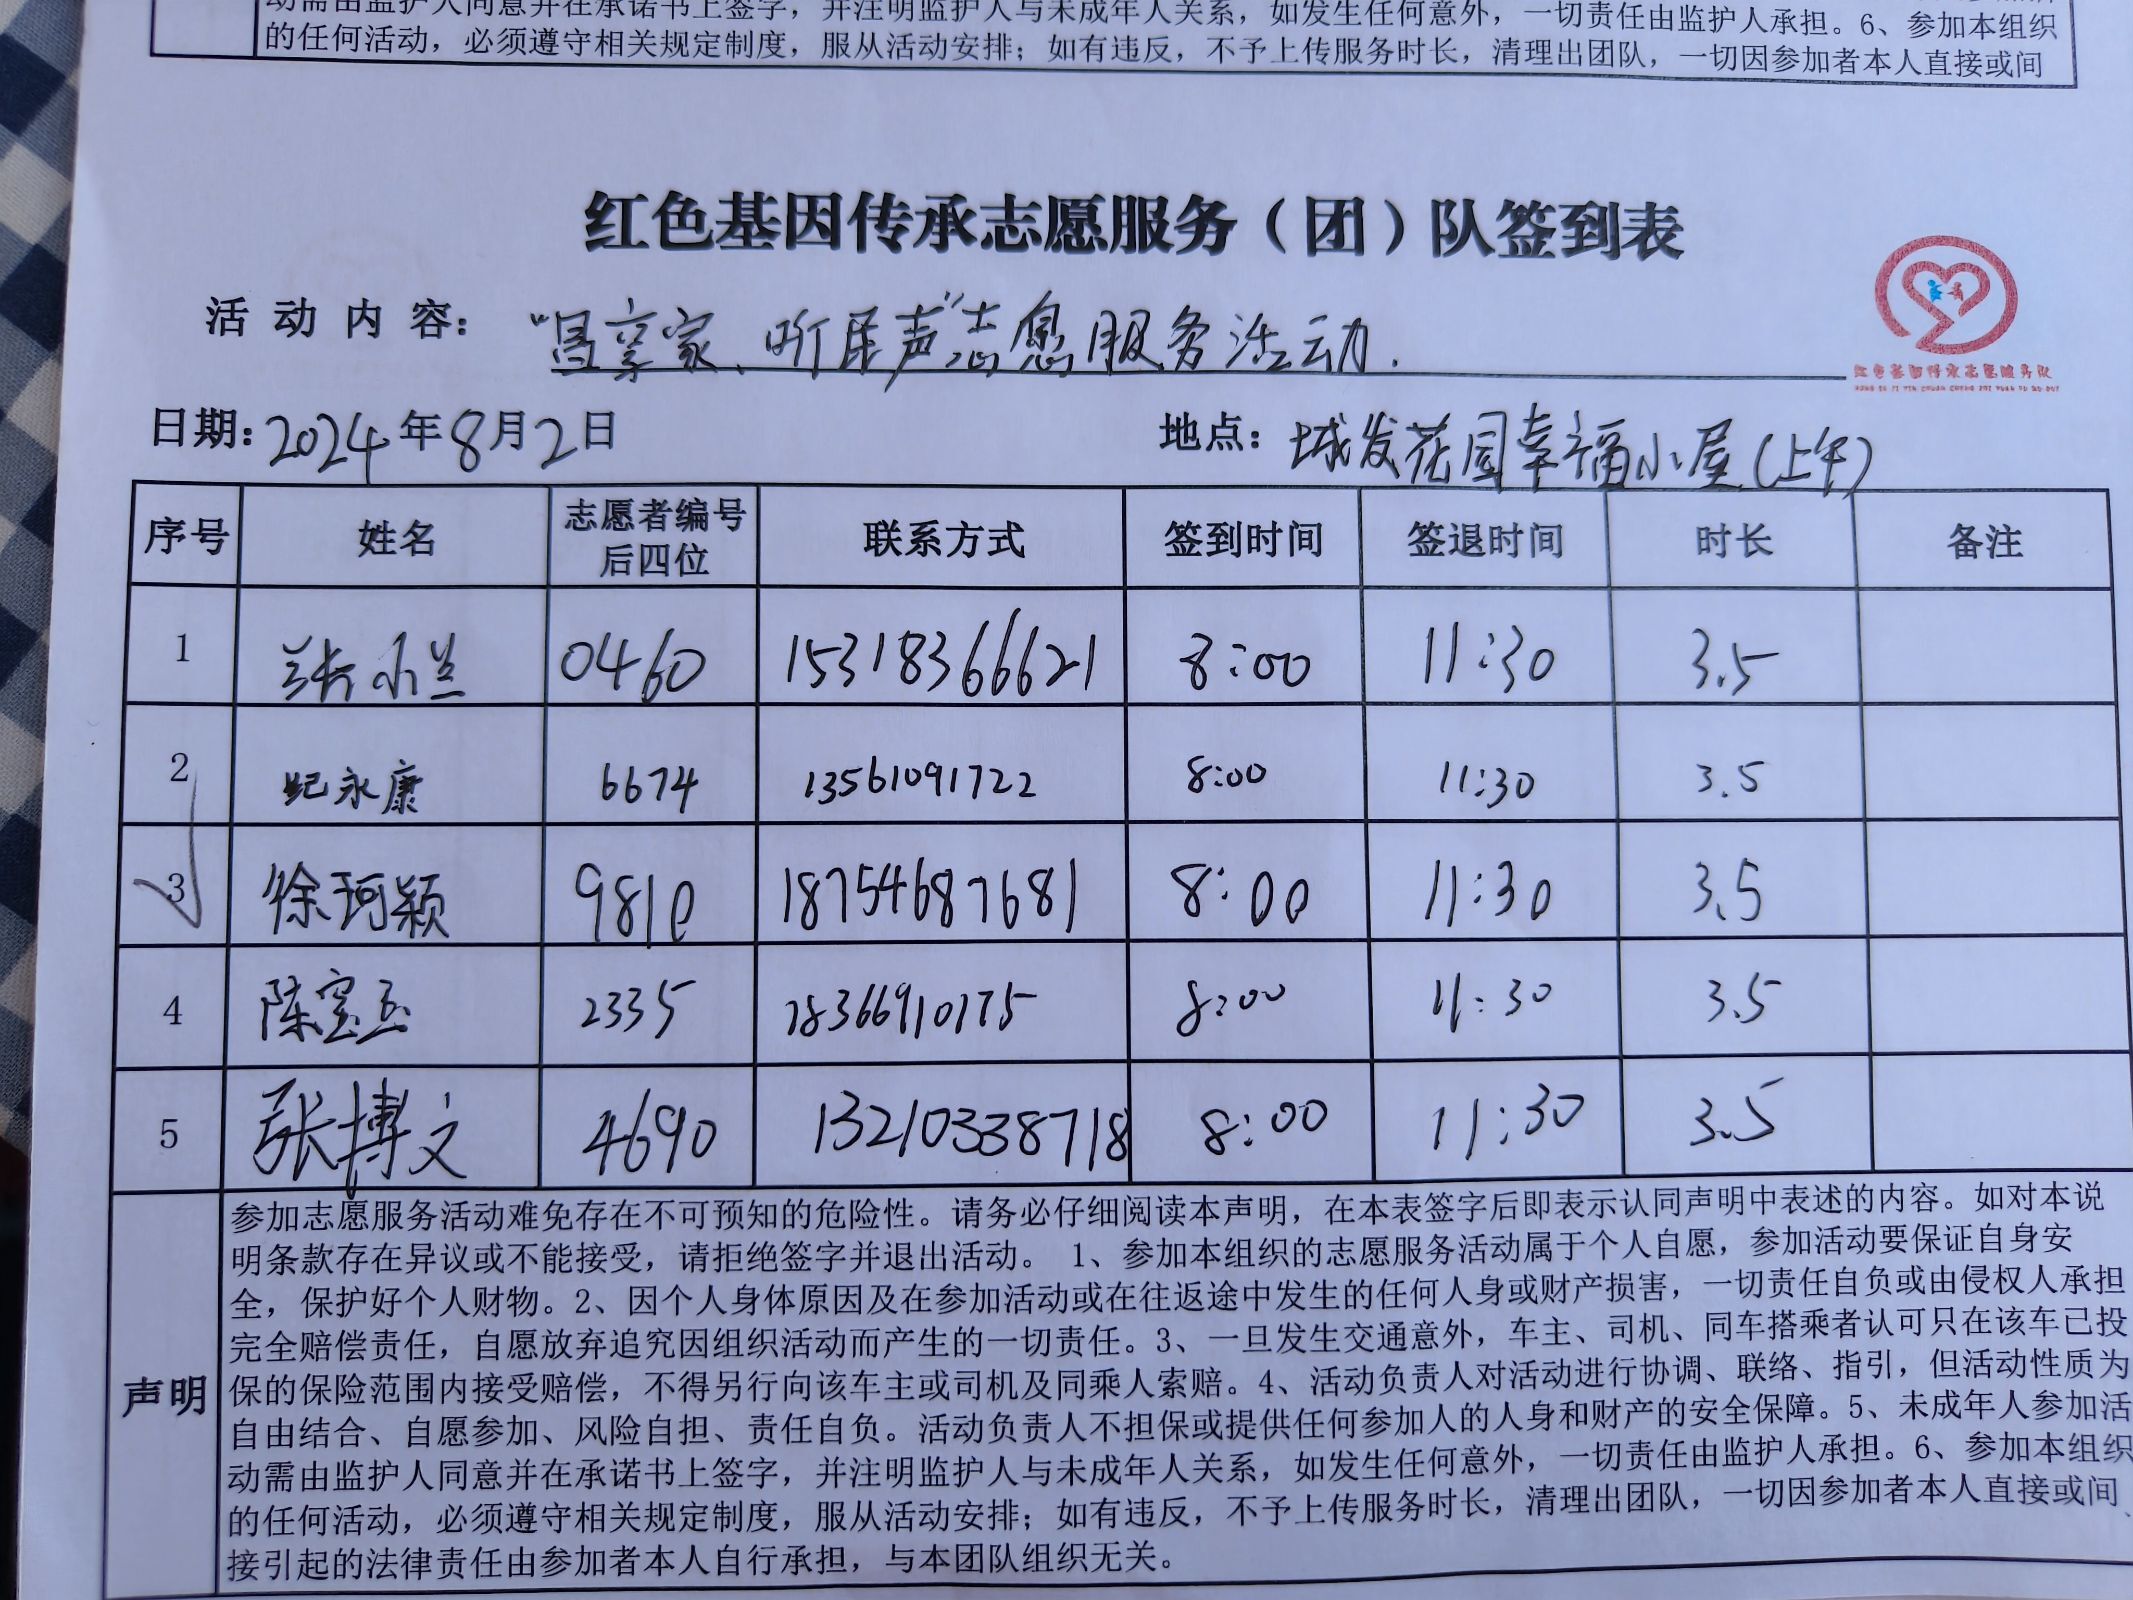 动需由监护人同意并在承诺书上签字，并注明监护人与未成年人关系，如发生任何意外，一切责任由监护人承担。6、参加本组织
的任何活动，必须遵守相关规定制度，服从活动安排；如有违反，不予上传服务时长，清理出团队，一切因参加者本人直接或间
红色基因传承志愿服务（团）队签到表
活动内容：享家、听民声"志愿服务活动.
红色基因传承志愿服务队
日期：2024年8月2日 地点：城发花园幸福小屋(上午)
序号 姓名 志愿者编号后四位 联系方式 签到时间 签退时间 时长 备注
1 张小兰 0460 15318366621 8:00 11:30 3.5
2 纪永康 6674 13561091722 8:00 11:30 3.5
3 徐珂颖 9810 18754687681 8:00 11:30 3.5
4 陈宝玉 2335 18366910175 8:00 11:30 3.5
5 张博文 4690 13210338718 8:00 11:30 3.5
声明
参加志愿服务活动难免存在不可预知的危险性。请务必仔细阅读本声明，在本表签字后即表示认同声明中表述的内容。如对本说
明条款存在异议或不能接受，请拒绝签字并退出活动。 1、参加本组织的志愿服务活动属于个人自愿，参加活动要保证自身安
全，保护好个人财物。2、因个人身体原因及在参加活动或在往返途中发生的任何人身或财产损害，一切责任自负或由侵权人承担
完全赔偿责任，自愿放弃追究因组织活动而产生的一切责任。3、一旦发生交通意外，车主、司机、同车搭乘者认可只在该车已投
保的保险范围内接受赔偿，不得另行向该车主或司机及同乘人索赔。4、活动负责人对活动进行协调、联络、指引，但活动性质为
自由结合、自愿参加、风险自担、责任自负。活动负责人不担保或提供任何参加人的人身和财产的安全保障。5、未成年人参加活
动需由监护人同意并在承诺书上签字，并注明监护人与未成年人关系，如发生任何意外，一切责任由监护人承担。6、参加本组织
的任何活动，必须遵守相关规定制度，服从活动安排；如有违反，不予上传服务时长，清理出团队，一切因参加者本人直接或间
接引起的法律责任由参加者本人自行承担，与本团队组织无关。